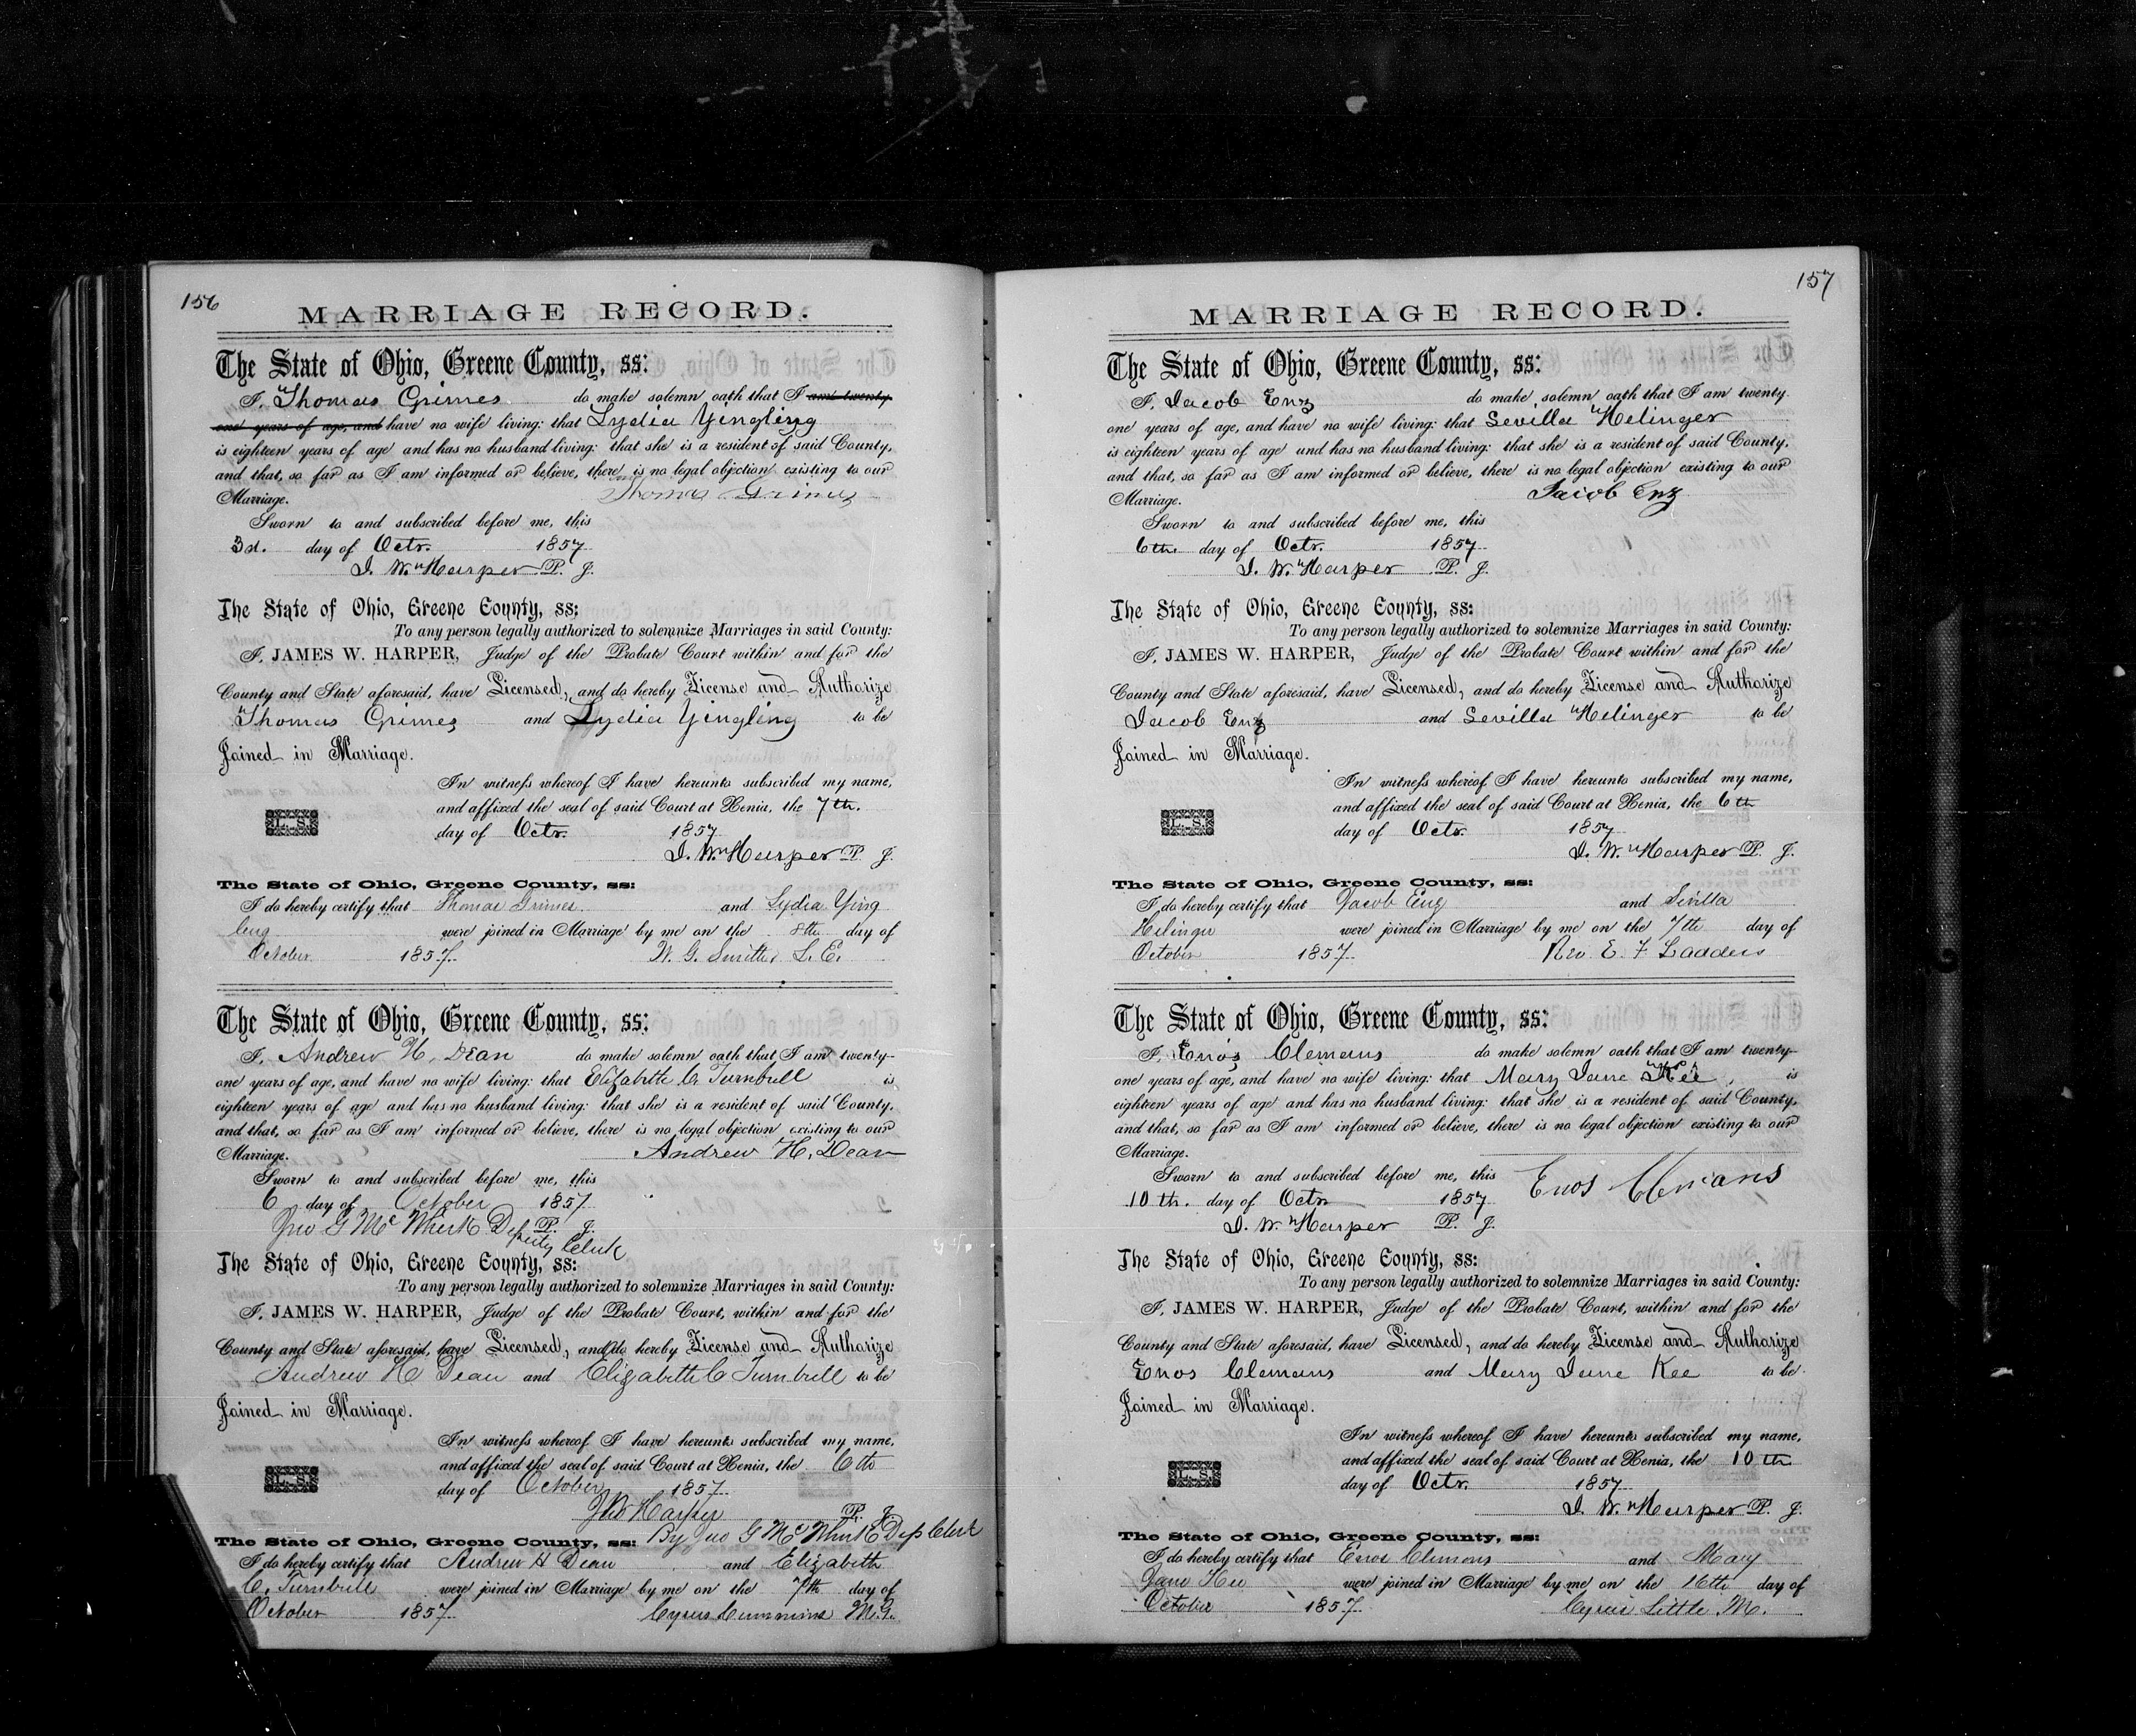 156
MARRIAGE RECORD.
The State of Ohio, Greene County, ss:
I, Thomas Grimes do make solemn oath that I am twenty
one years of age, and have no wife living: that Lydia Yingling
is eighteen years of age and has no husband living: that she is a resident of said County,
and that, so far as I am informed or believe, there is no legal objection existing to our
Marriage. Thomas Grimes
Sworn to and subscribed before me, this
3d. day of Octr. 1857
J. W. Harper P. J.
The State of Ohio, Greene County, ss:
To any person legally authorized to solemnize Marriages in said County:
I, JAMES W. HARPER, Judge of the Probate Court within and for the
County and State aforesaid, have Licensed, and do hereby License and Authorize
Thomas Grimes and Lydia Yingling to be
Joined in Marriage.
In witness whereof I have hereunto subscribed my name,
and affixed the seal of said Court at Xenia, the 7th.
L. S.
day of Octr. 1857
J. W. Harper P. J.
The State of Ohio, Greene County, ss:
I do hereby certify that Thomas Grimes and Lydia Ying
ling were joined in Marriage by me on the 8th day of
October 1857. W. G. L. E.
The State of Ohio, Greene County, ss:
I, Andrew H. Dean do make solemn oath that I am twenty-
one years of age, and have no wife living: that Elizabeth C. Turnbull is
eighteen years of age and has no husband living: that she is a resident of said County,
and that, so far as I am informed or believe, there is no legal objection existing to our
Marriage. Andrew H. Dean
Sworn to and subscribed before me, this
6 day of October 1857
Jno G Mc P. J.
Deputy Clerk
The State of Ohio, Greene County, ss:
To any person legally authorized to solemnize Marriages in said County:
I, JAMES W. HARPER, Judge of the Probate Court, within and for the
County and State aforesaid, have Licensed, and do hereby License and Authorize
Andrew H Dean and Elizabeth C Turnbull to be
Joined in Marriage.
In witness whereof I have hereunto subscribed my name,
and affixed the seal of said Court at Xenia, the 6th
L. S.
day of October 1857
J W Harper P. J.
By Jno G Mc Dep Clerk
The State of Ohio, Greene County, ss:
I do hereby certify that Andrew H Dean and Elizabeth
C. Turnbull were joined in Marriage by me on the 7th day of
October 1857 Cyrus Cummins M.G.
157
MARRIAGE RECORD.
The State of Ohio, Greene County, ss:
I, Jacob Enz do make solemn oath that I am twenty
one years of age, and have no wife living: that Sevilla Helinger
is eighteen years of age and has no husband living: that she is a resident of said County,
and that, so far as I am informed or believe, there is no legal objection existing to our
Marriage. Jacob Enz
Sworn to and subscribed before me, this
6th day of Octr. 1857
J. W. Harper P. J.
The State of Ohio, Greene County, ss:
To any person legally authorized to solemnize Marriages in said County:
I, JAMES W. HARPER, Judge of the Probate Court within and for the
County and State aforesaid, have Licensed, and do hereby License and Authorize
Jacob Enz and Sevilla Helinger to be
Joined in Marriage.
In witness whereof I have hereunto subscribed my name,
and affixed the seal of said Court at Xenia, the 6th
L. S.
day of Octr. 1857
J. W. Harper P. J.
The State of Ohio, Greene County, ss:
I do hereby certify that Jacob Enz and Sevilla
Helinger were joined in Marriage by me on the 7th day of
October 1857. Rev. E. F.
The State of Ohio, Greene County, ss:
I, Enos Clemans do make solemn oath that I am twenty-
one years of age, and have no wife living: that Mary Jane Kee is
eighteen years of age and has no husband living: that she is a resident of said County,
and that, so far as I am informed or believe, there is no legal objection existing to our
Marriage.
Sworn to and subscribed before me, this
Enos Clemans
10th. day of Octr 1857
J. W. Harper P. J.
The State of Ohio, Greene County, ss:
To any person legally authorized to solemnize Marriages in said County:
I, JAMES W. HARPER, Judge of the Probate Court, within and for the
County and State aforesaid, have Licensed, and do hereby License and Authorize
Enos Clemans and Mary Jane Kee to be
Joined in Marriage.
In witness whereof I have hereunto subscribed my name,
and affixed the seal of said Court at Xenia, the 10th
L. S.
day of Octr. 1857
J. W. Harper P. J.
The State of Ohio, Greene County, ss:
I do hereby certify that Enos Clemons and Mary
Jane Kee were joined in Marriage by me on the 16th day of
October 1857. Cyrus Little M.